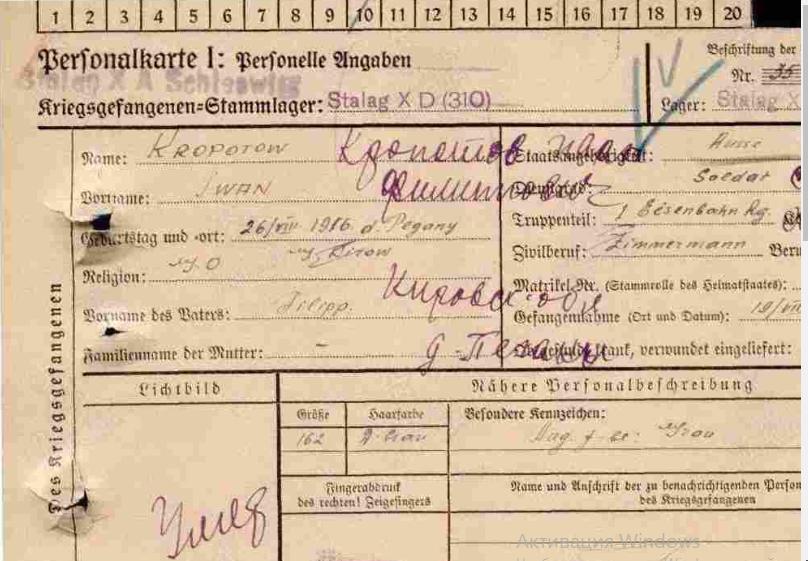 1 2 3 4 5 6 7 8 9 10 11 12 13 14 15 16 17 18 19 20
Personalkarte I: Personelle Angaben
Beschriftung der
Stalag X A Schleswig
Nr. 35
Kriegsgefangenen-Stammlager: Stalag X D (310)
Lager: Stalag X
Name: KROPOTOW Кропотов Иван
Staatsangehörigkeit: Russe
Vorname: IWAN Филиппович
Dienstgrad: Soldat
Geburtstag und -ort: 26/VIII 1916 d. Pegany
Truppenteil: 1 Eisenbahn Rg.
Kirow
Zivilberuf: Zimmermann
Religion:
Matrikel-Nr. (Stammrolle des Heimatstaates):
Кировск. обл
Vorname des Vaters: Filipp.
Gefangennahme (Ort und Datum): 19/VII
Familienname der Mutter: -
д.
krank, verwundet eingeliefert:
Des Kriegsgefangenen
Lichtbild
Nähere Personalbeschreibung
Größe Haarfarbe Besondere Kennzeichen:
162
Fingerabdruck
des rechten! Zeigefingers
Name und Anschrift der zu benachrichtigenden Person
des Kriegsgefangenen
Умер
Активация Windows